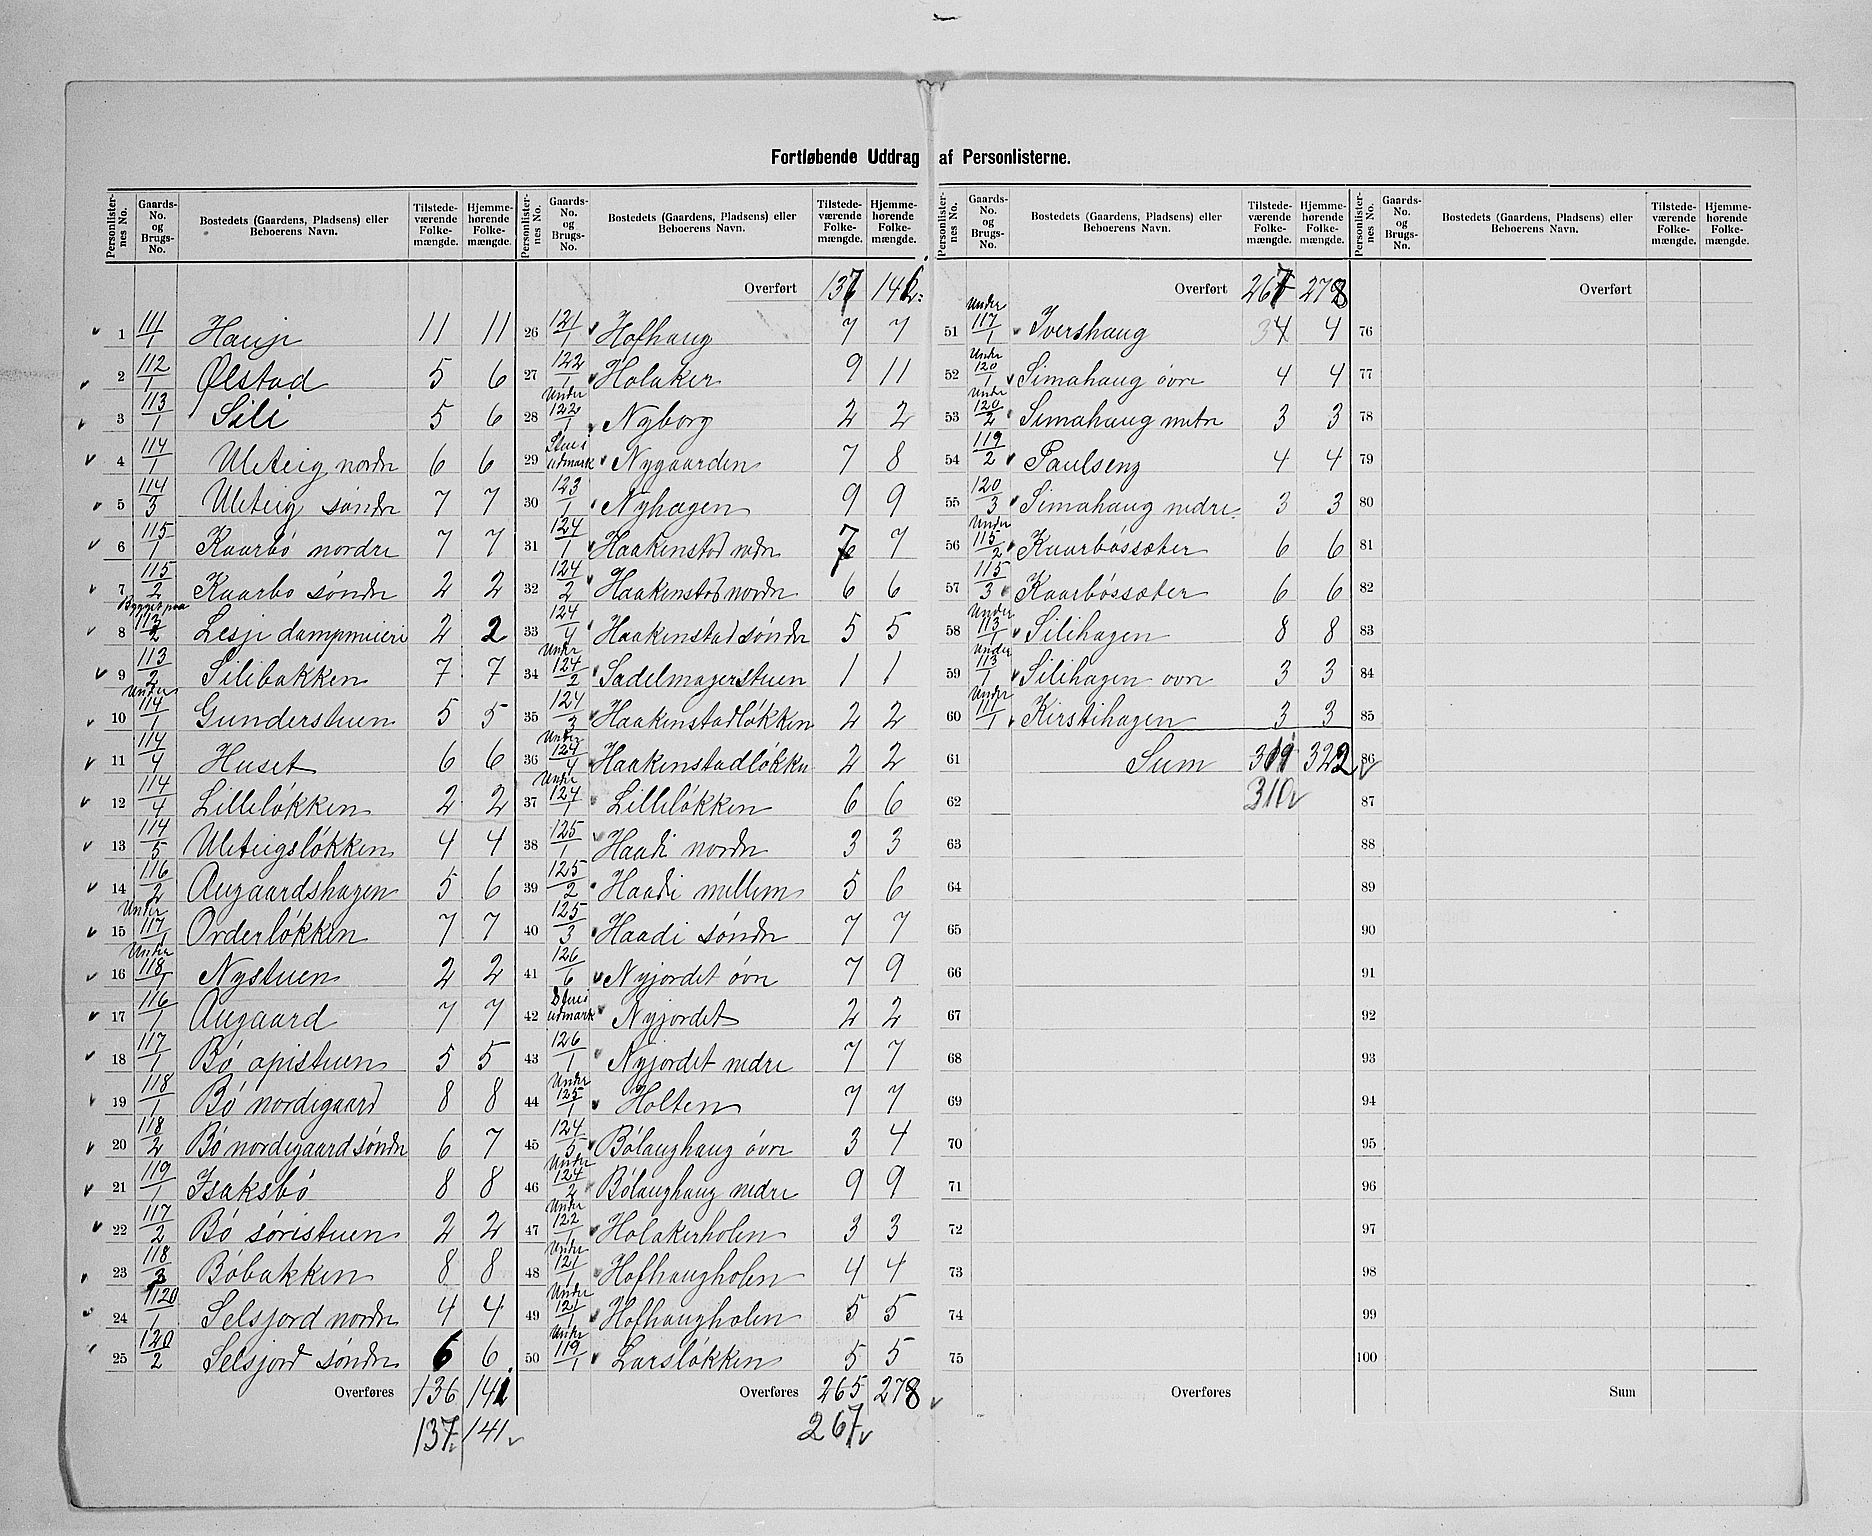 Fortløbende Uddrag af Personlisterne.
Personlister-nes No. | Gaards-No. og Brugs-No. | Bostedets (Gaardens, Pladsens) eller Beboerens Navn. | Tilstede-værende Folke-mængde. | Hjemme-hørende Folke-mængde.
1 111/1 Hauje 11 11
2 112/1 Ølstad 5 6
3 113/1 Sili 5 6
4 114/1 Uleteig nordre 6 6
5 114/3 Uleteig søndre 7 7
6 115/1 Kaarbø nordre 7 7
7 115/2 Kaarbø søndre 2 2
8 Bygget paa 113/2 Lesje dampmeieri 2 2
9 113/2 Silibakken 7 7
10 Under 114/1 Gunderstuen 5 5
11 114/4 Huset 6 6
12 114/4 Lilleløkken 2 2
13 114/5 Uleteigsløkken 4 4
14 116/2 Augaardshagen 5 6
15 Under 117/1 Orderløkken 7 7
16 Under 118/1 Nystuen 2 2
17 116/1 Augaard 7 7
18 117/1 Bø opistuen 5 5
19 118/1 Bø nordigaard 8 8
20 118/2 Bø nordigaard søndre 6 7
21 119/1 Isaksbø 8 8
22 117/2 Bø søristuen 2 2
23 118/3 Bøbakken 8 8
24 120/1 Selsjord nordre 4 4
25 120/2 Selsjord søndre 6 6
Overføres 136 141
137 141
Personlister-nes No. | Gaards-No. og Brugs-No. | Bostedets (Gaardens, Pladsens) eller Beboerens Navn. | Tilstede-værende Folke-mængde. | Hjemme-hørende Folke-mængde.
Overført 137 141
26 121/1 Hofhaug 7 7
27 122/1 Holaker 9 11
28 Under 122/1 Nyborg 2 2
29 Stue i udmark Nygaarden 7 8
30 123/1 Nyhagen 9 9
31 124/1 Haakenstad nedre 7 7
32 124/2 Haakenstad nordre 6 6
33 124/4 Haakenstad søndre 5 5
34 Under 124/2 Sadelmagerstuen 1 1
35 124/3 Haakenstadløkken 2 2
36 Under 124/4 Haakenstadløkken 2 2
37 Under 124/1 Lilleløkken 6 6
38 125/1 Haadi nordre 3 3
39 125/2 Haadi mellem 5 6
40 125/3 Haadi søndre 7 7
41 126/6 Nyjordet øvre 7 9
42 Stue i udmark Nyjordet 2 2
43 126/1 Nyjordet nedre 7 7
44 Under 125/1 Holten 7 7
45 124/5 Bølaughaug øvre 3 4
46 Under 124/2 Bølaughaug nedre 9 9
47 Under 122/1 Holakerholen 3 3
48 Under 121/1 Hofhaugholen 4 4
49 Under 121/1 Hofhaugholen 5 5
50 Under 119/1 Larsløkken 5 5
Overføres 265 278
267
Personlister-nes No. | Gaards-No. og Brugs-No. | Bostedets (Gaardens, Pladsens) eller Beboerens Navn. | Tilstede-værende Folke-mængde. | Hjemme-hørende Folke-mængde.
Overført 267 278
51 Under 117/1 Ivershaug 4 4
52 Under 120/1 Simahaug øvre 4 4
53 Under 120/2 Simahaug metre 3 3
54 119/2 Paulseng 4 4
55 120/3 Simahaug nedre 3 3
56 Under 115/2 Kaarbøssæter 6 6
57 115/3 Kaarbøssæter 6 6
58 Under 113/1 Silihagen 8 8
59 Under 113/1 Silihagen øvre 3 3
60 Under 111/1 Kirstihagen 3 3
61 Sum 322
62 310
63
64
65
66
67
68
69
70
71
72
73
74
75
Overføres
Personlister-nes No. | Gaards-No. og Brugs-No. | Bostedets (Gaardens, Pladsens) eller Beboerens Navn. | Tilstede-værende Folke-mængde. | Hjemme-hørende Folke-mængde.
Overført
76
77
78
79
80
81
82
83
84
85
86
87
88
89
90
91
92
93
94
95
96
97
98
99
100
Sum